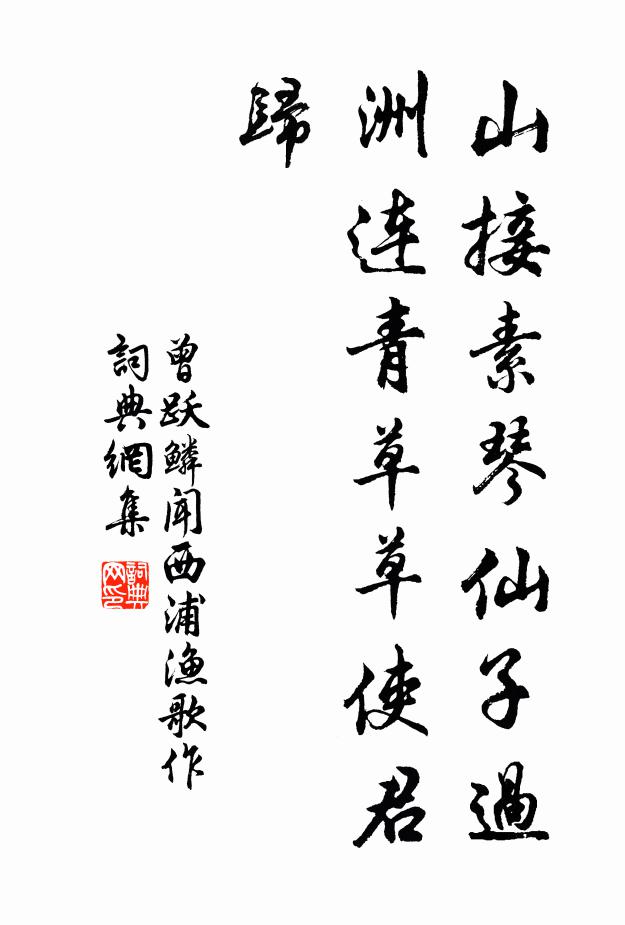 山接素琴仙子過
洲连青草草使君
歸
曾跃鳞闻西浦渔歌作
詞典網集
詞典
网印